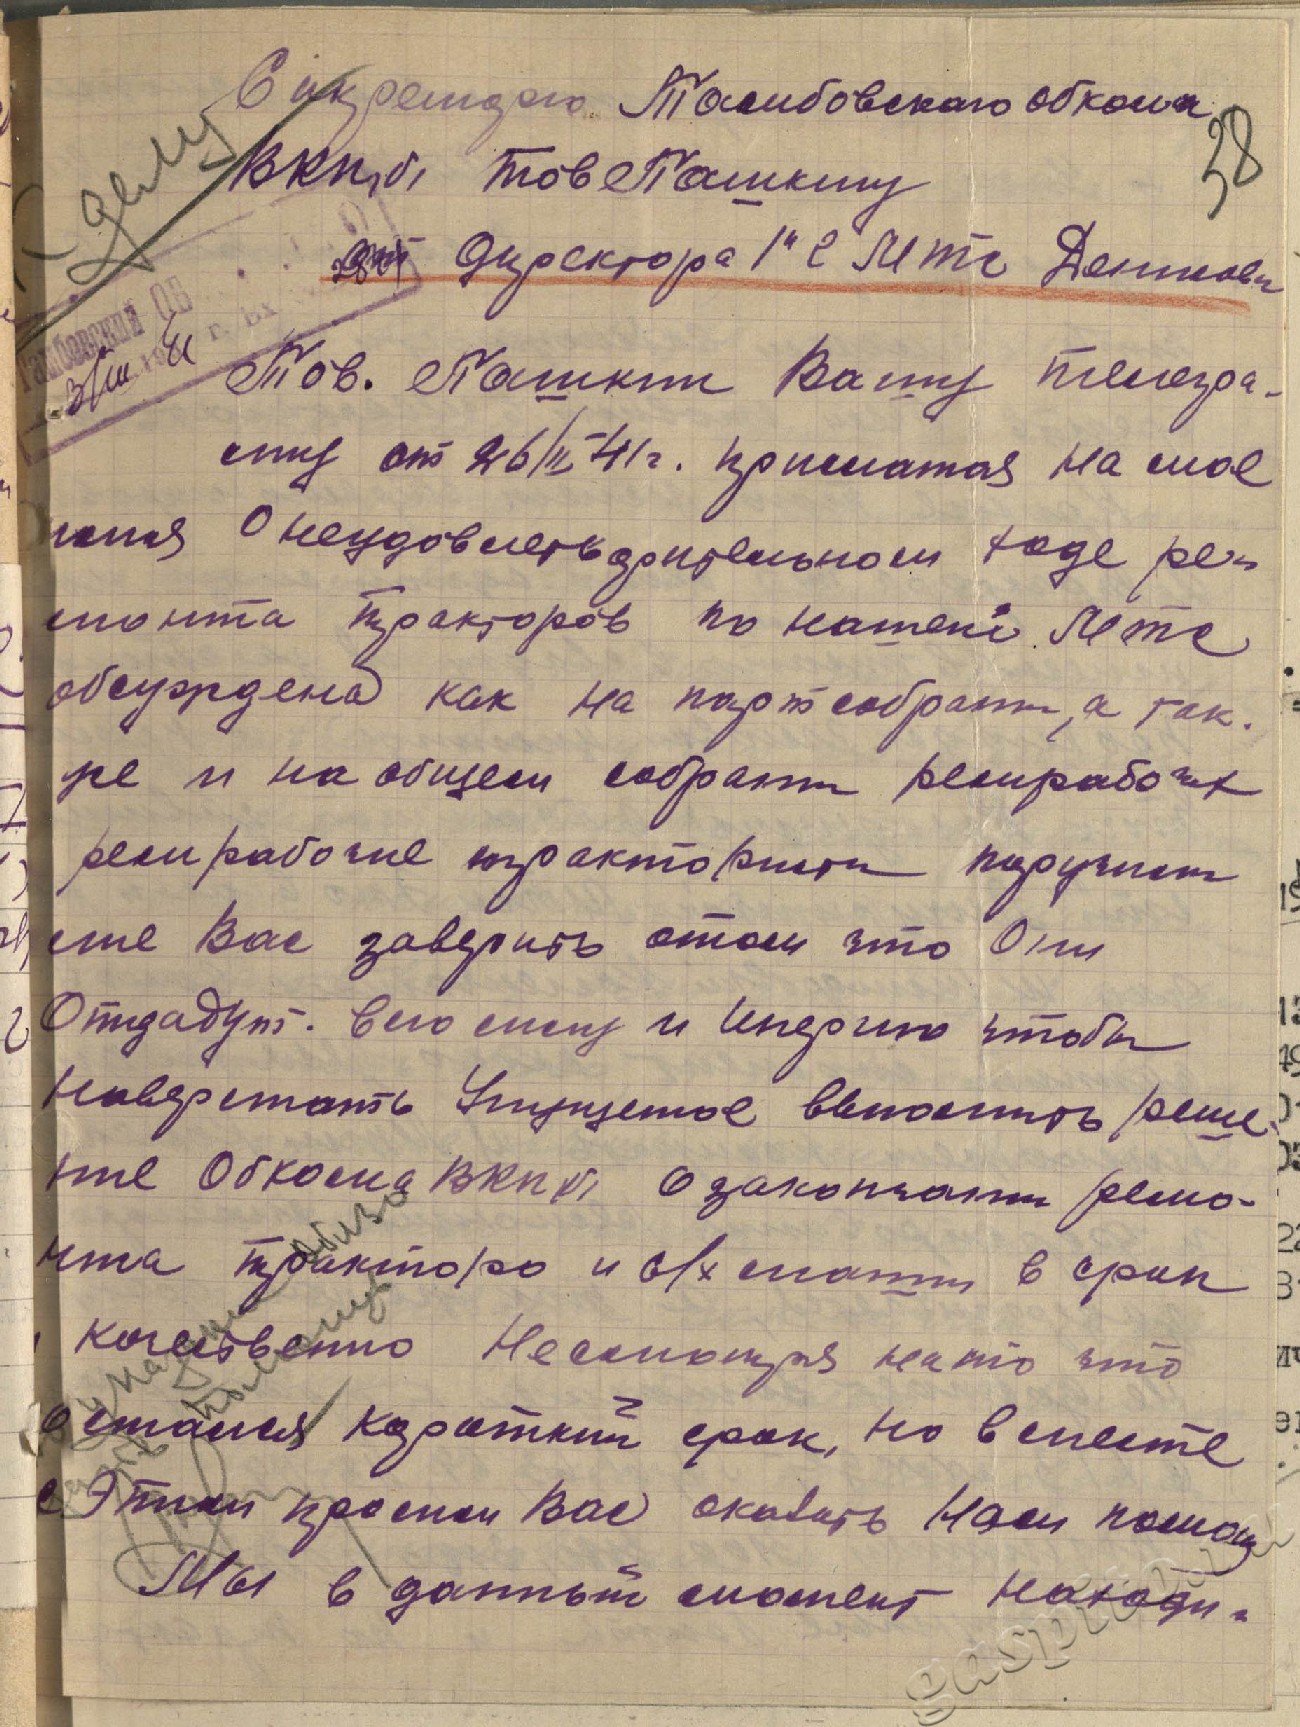 Секретарю Тамбовского обкома
ВКП(б) тов Пашкину
38
от Директора 1й С МТС Деникова
К делу
Тамбовский ОК
Тов. Пашкин Вашу телегра-
мму от 26/II-41 г. присматая на мое
имя О неудовлетьварительном ходе ре-
монта тракторов по нашей МТС
обсуждена как на партсобрании, а так-
же и на общем собрании ремрабочих
ремрабочие трактористы паручили
мне Вас заверить отом что Они
Отдадут. всю силу и Инергию чтобы
Наверстать Упущеное выполнить реше-
ние Обкома ВКП(б) о закончании ремо-
нта тракторо и с/х машин в срок
и качественно Несмотря на то что
остался кароткий срок, но вместе
с Этим просим Вас оказать Нам помощ
Мы в данный момент Находи-
gaspito.ru